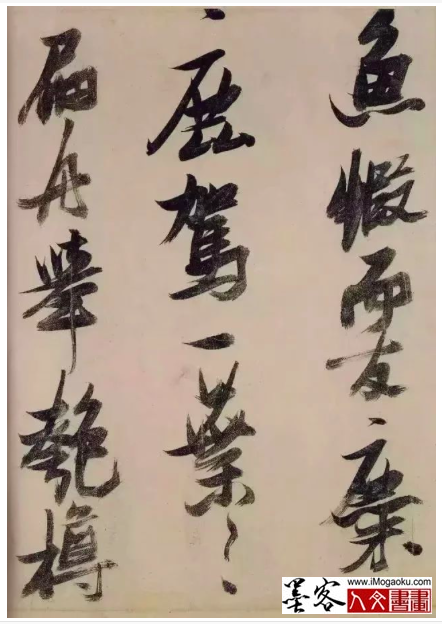 魚蝦而友麋
鹿駕一葉之
扁舟舉匏樽
墨客
www.iMogaoku.com
人文書畫